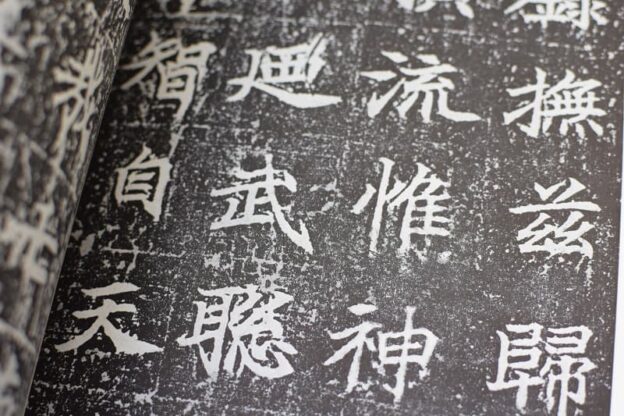 撫茲歸
流惟神
廼武聰
智自天